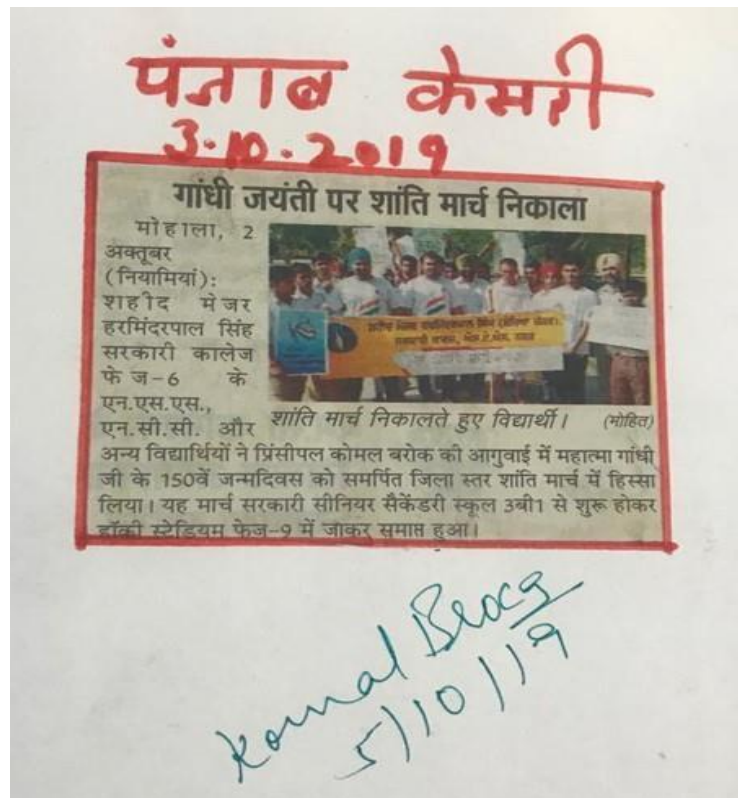 पंजाब केसरी
3.10.2019
गांधी जयंती पर शांति मार्च निकाला
मोहाली, 2
अक्तूबर
(नियामियां):
शहीद मेजर
हरमिंदरपाल सिंह
सरकारी कालेज
फेज-6 के
एन.एस.एस.,
एन.सी.सी. और
शांति मार्च निकालते हुए विद्यार्थी। (मोहित)
अन्य विद्यार्थियों ने प्रिंसीपल कोमल बरोक की आगुवाई में महात्मा गांधी
जी के 150वें जन्मदिवस को समर्पित जिला स्तर शांति मार्च में हिस्सा
लिया। यह मार्च सरकारी सीनियर सैकेंडरी स्कूल 3बी1 से शुरू होकर
हॉकी स्टेडियम फेज-9 में जाकर समाप्त हुआ।
Komal Broca
5/10/19